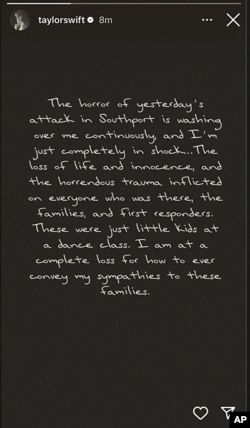 taylorswift 8m
The horror of yesterday's
attack in Southport is washing
over me continuously, and I'm
just completely in shock...The
loss of life and innocence, and
the horrendous trauma inflicted
on everyone who was there, the
families, and first responders.
These were just little kids at
a dance class. I am at a
complete loss for how to ever
convey my sympathies to these
families.
AP